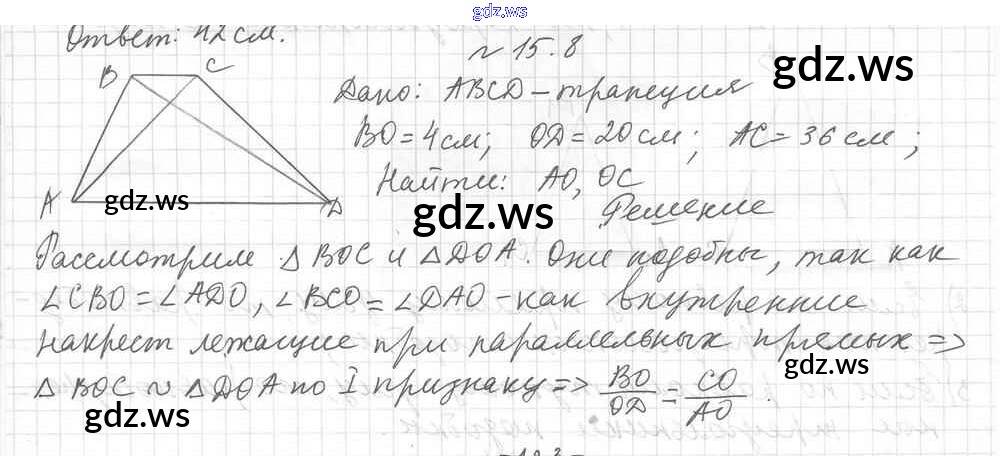 gdz.ws
Ответ: 42 см.
№ 15.8
gdz.ws
B C
A D
gdz.ws
Дано: ABCD – трапеция
BO = 4 см; OD = 20 см; AC = 36 см;
Найти: AO, OC
gdz.ws
Решение
Рассмотрим △ BOC и △ DOA. Они подобны, так как
∠CBO = ∠ADO, ∠BCO = ∠DAO - как внутренние
накрест лежащие при параллельных прямых =>
gdz.ws
△ BOC ~ △ DOA по I признаку => BO/OD = CO/AO.
gdz.ws
gdz.ws